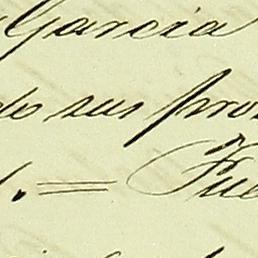 Garcia
do sus pro
. = Fue